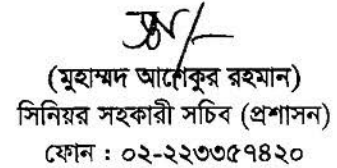 (মুহাম্মদ আশেকুর রহমান)
সিনিয়র সহকারী সচিব (প্রশাসন)
ফোন : ০২-২২৩৩৫৭৪২০